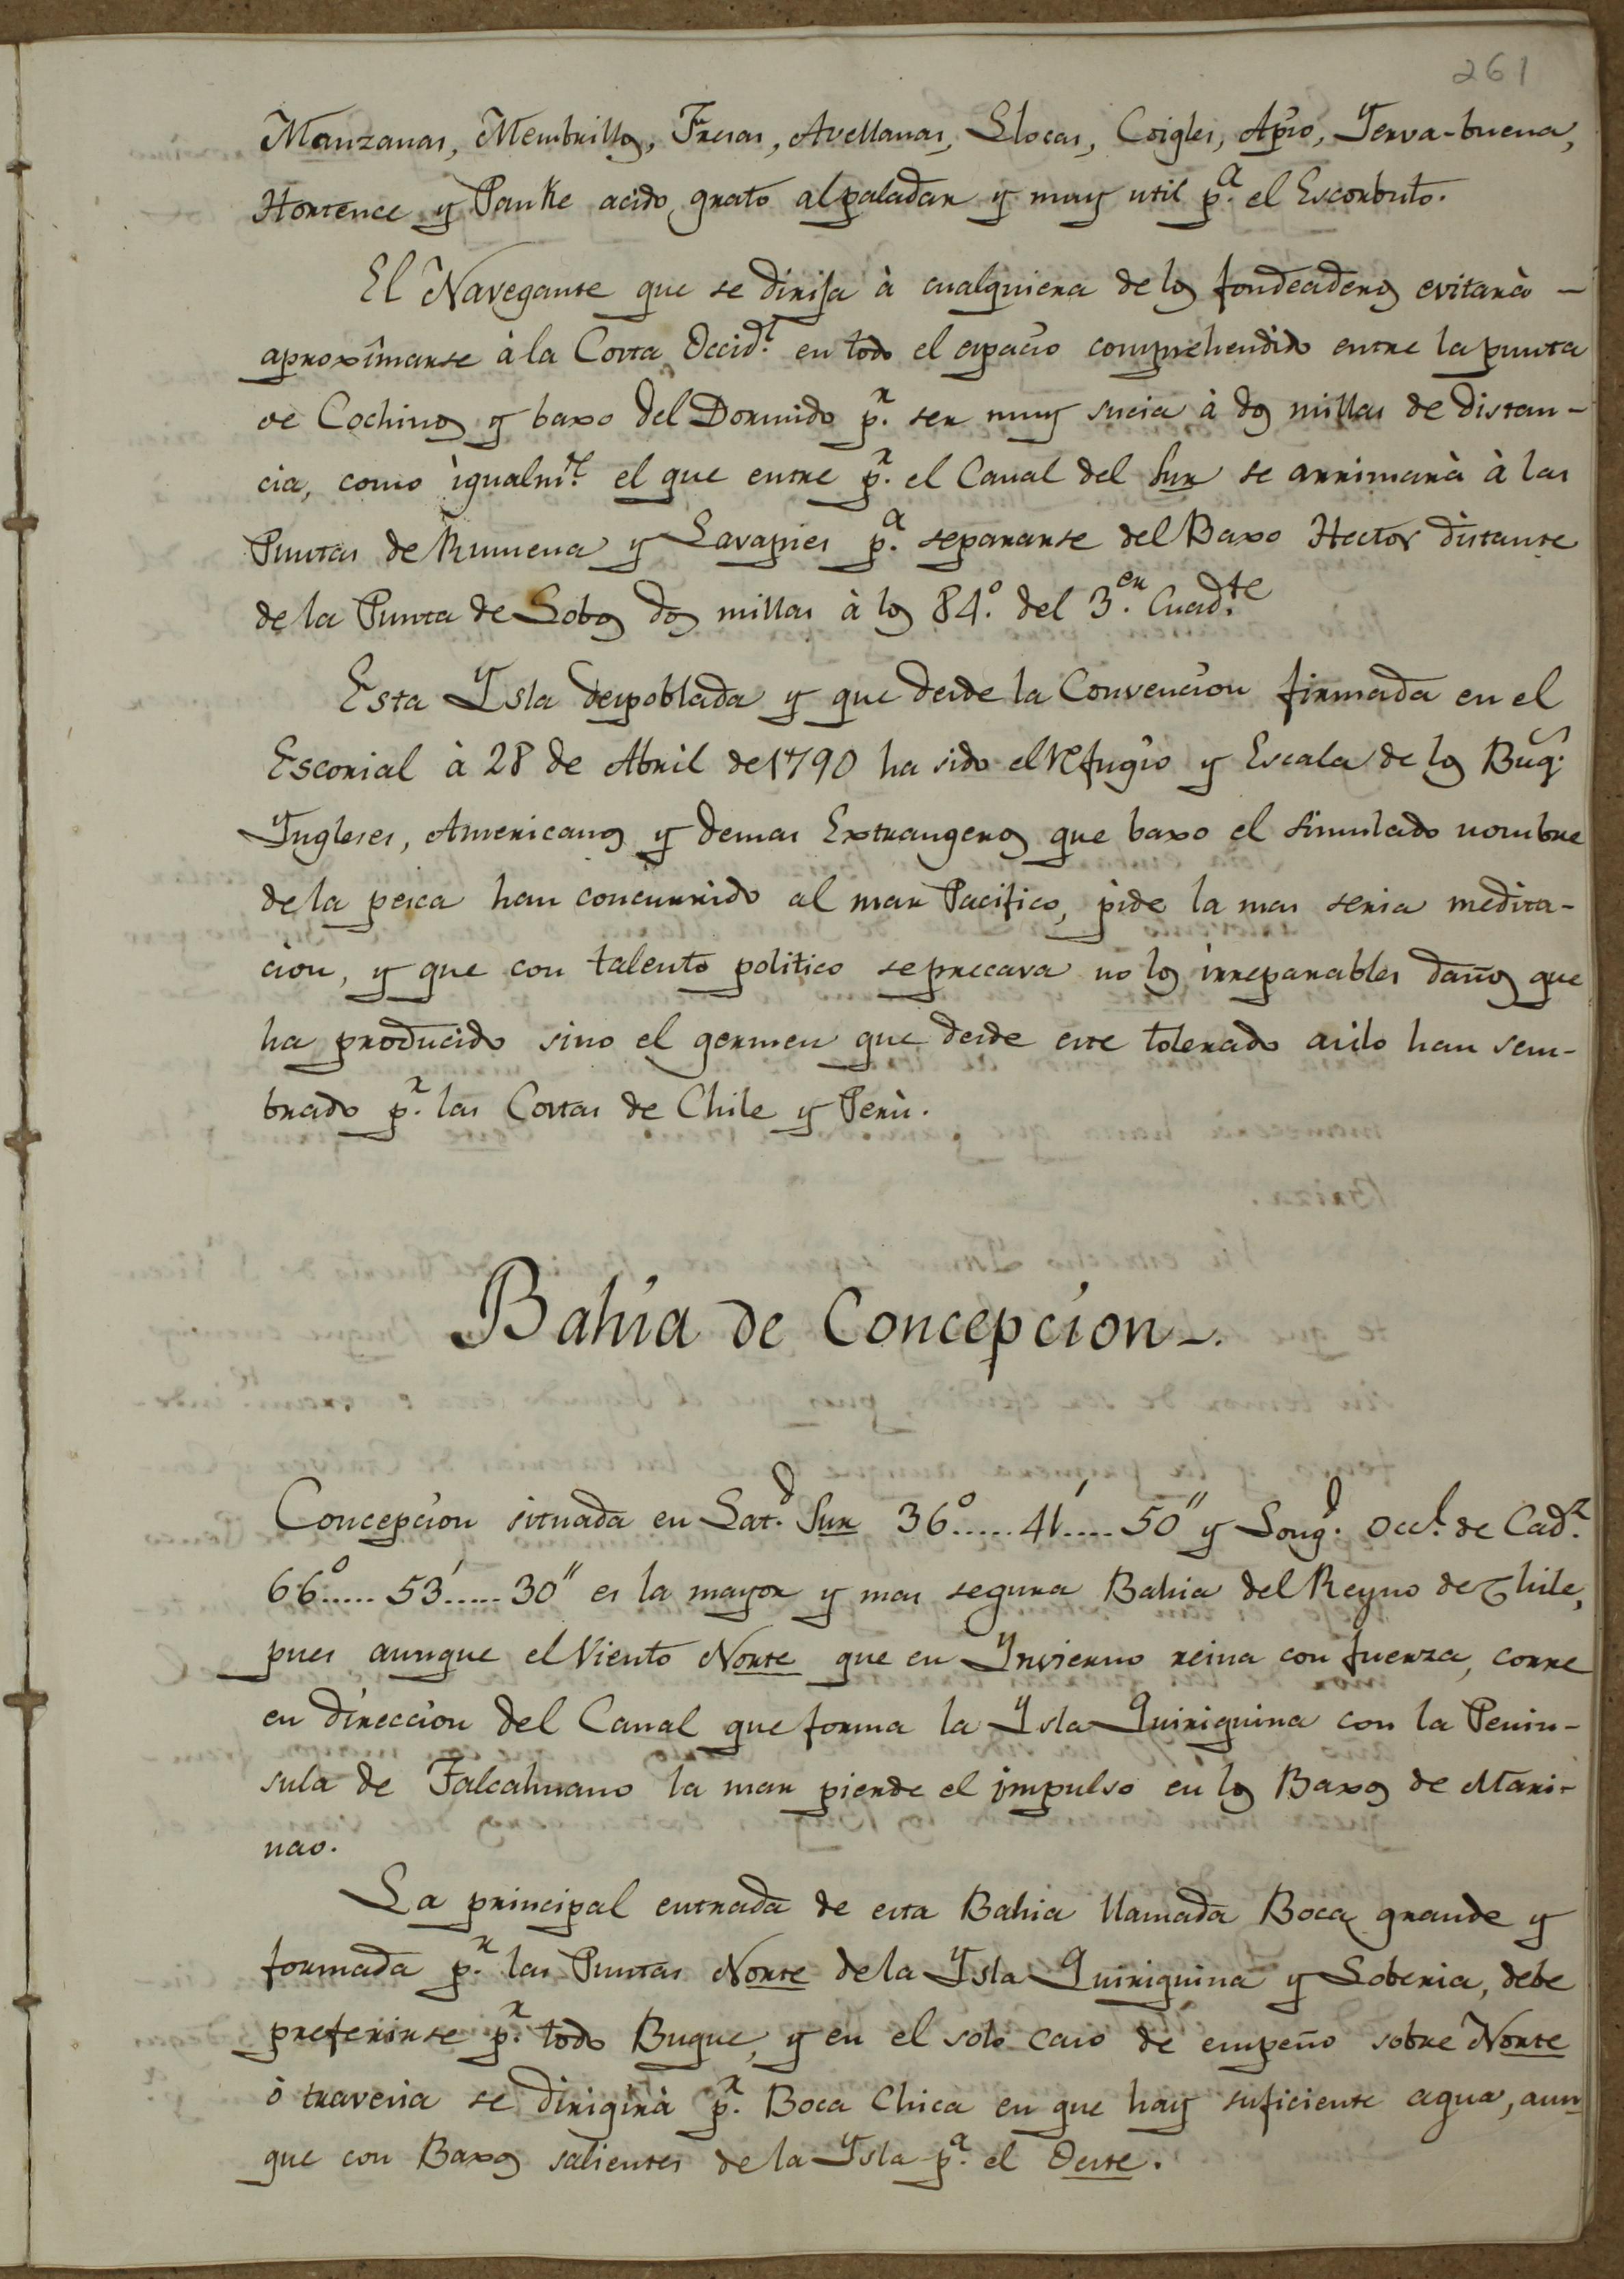 261
Manzanas, Membrillos, Fresas, Avellanas, Llocas, Coigles, Apio, Yerva-buena,
Hortence y Panke acido, grato al paladar y muy util p.ª el Escorbuto.
El Navegante que se dirija à cualquiera de los fondeaderos evitarà -
aproximarse à la Costa Occid.l en todo el espacio comprehendido entre la punta
de Cochinos y baxo del Dormido p.r ser muy sucia à dos millas de distan-
cia, como igualm.te el que entre p.r el Canal del Sur se arrimarà à las
Puntas de Rumena y Lavapies p.ª separarse del Baxo Hector distante
de la Punta de Lobos dos millas à los 84.º del 3.er Cuad.te
Esta Ysla despoblada y que desde la Convencion firmada en el
Escorial à 28 de Abril de 1790 ha sido el refugio y Escala de los Buq.s
Yngleses, Americanos y demas Extrangeros que baxo el simulado nombre
de la pesca han concurrido al mar Pacifico, pide la mas seria medita-
cion, y que con talento politico se precava no los irreparables daños que
ha producido sino el germen que desde este tolerado asilo han sem-
brado p.r las Costas de Chile y Perù.
Bahia de Concepcion-.
Concepcion situada en Lat.d Sur 36º.....41'....50" y Long.d Occ.l de Cad.z
66º.....53'.....30" es la mayor y mas segura Bahia del Reyno de Chile,
pues aunque el Viento Norte que en Ynvierno reina con fuerza, corre
en direccion del Canal que forma la Ysla Quiriquina con la Penin-
sula de Talcahuano la mar pierde el impulso en los Baxos de Mari-
nao.
La principal entrada de esta Bahia llamada Boca grande y
formada p.r las Puntas Norte de la Ysla Quiriquina y Loberia, debe
preferirse p.r todo Buque, y en el solo caso de empeño sobre Norte
ò travesia se dirigirà p.r Boca Chica en que hay suficiente agua, aun-
que con Baxos salientes de la Ysla p.ª el Oeste.